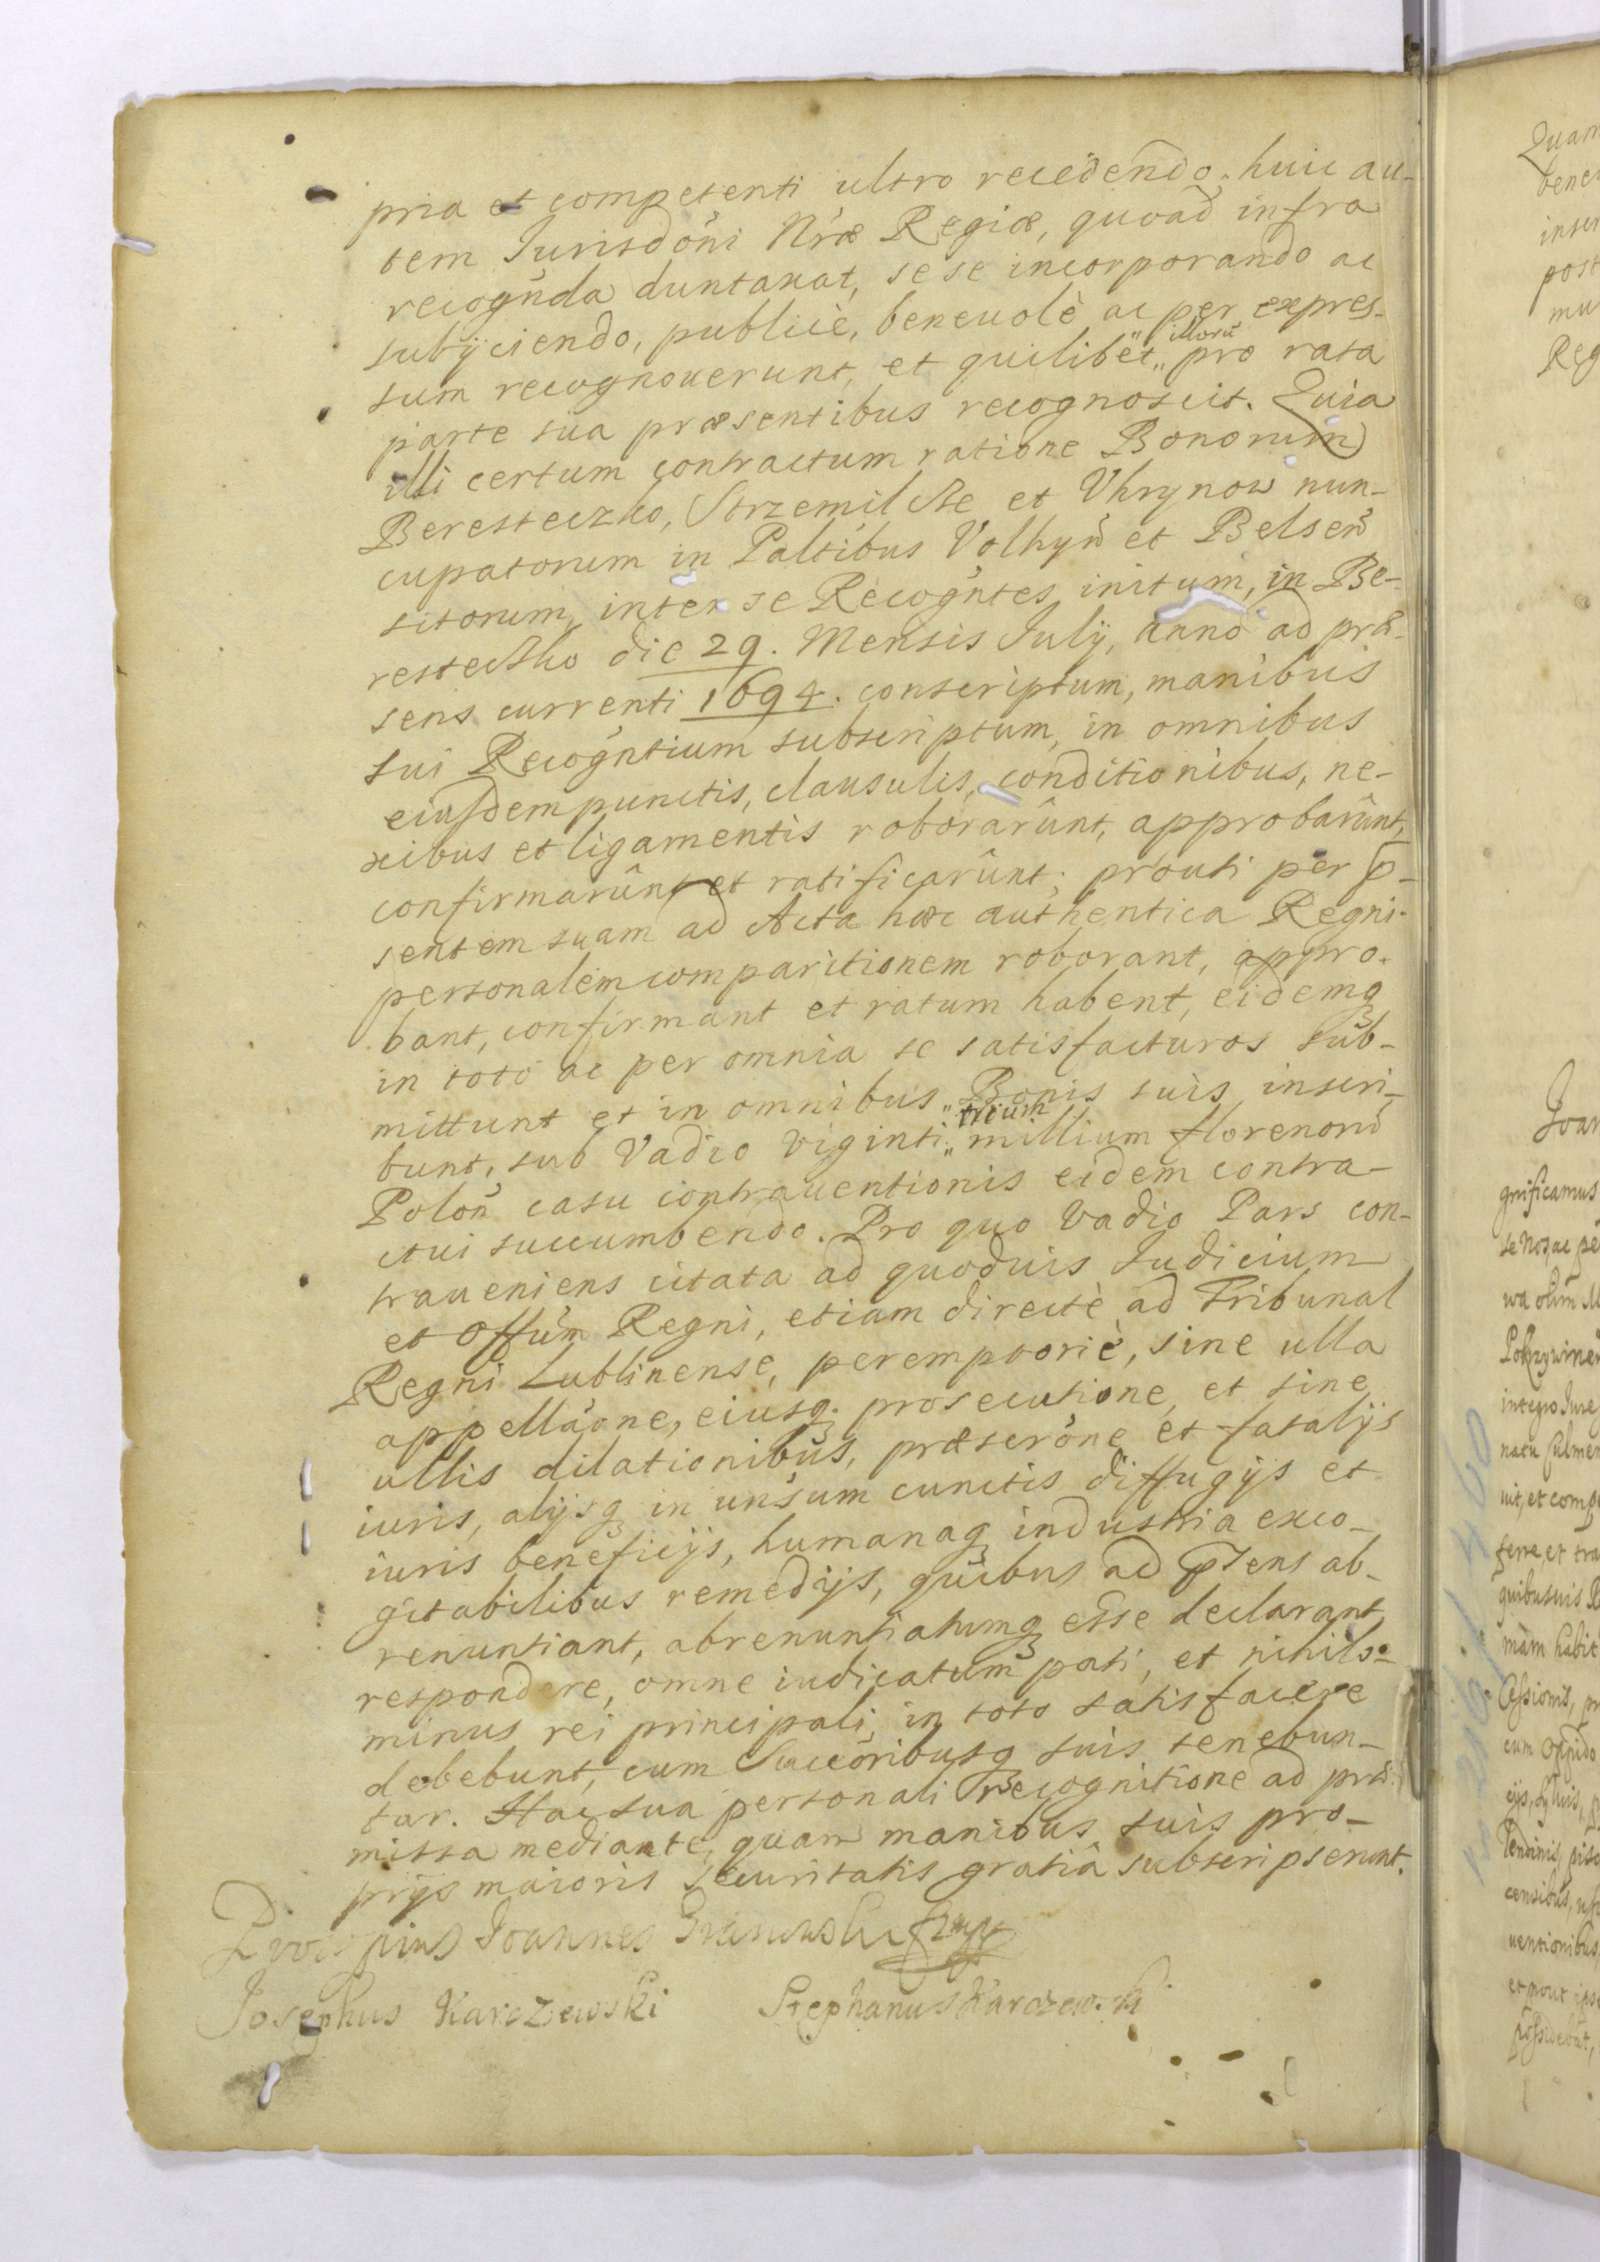 pria et competenti ultro recedendo. huic au-
tem Jurisdōni Nrae Regiae, quoad infra
recognda duntaxat, sese incorporando ac
subijciendo, publicè, beneuolè ac per expres-
sum recognouerunt, et quilibet „illorū„ pro rata
parte sua praesentibus recognoscit. Quia
illi certum contractum ratione Bonorum
Beresteczko, Strzemilcze et Vhrynow nun-
cupatorum in Paltibus Volhyn̄ et Belsen̄
sitorum, inter se Recogntes initum, in Be-
resteczko die 29. Mensis Julij, anno ad prae-
sens currenti 1694. conscriptum, manibus
sui Recogntium subscriptum, in omnibus
eiusdem punctis, clausulis, conditionibus, ne-
xibus et ligamentis roborarûnt, approbarûnt,
confirmarûnt et ratificarûnt; prouti per p-
sentem suam ad Acta haec authentica Regni
personalem comparitionem roborant, appro-
bant, confirmant et ratum habent, eidemq
in toto ac per omnia se satisfacturos sub-
mittunt et in omnibus Bonis suis inscri-
bunt, sub Vadio viginti „trium„ millium florenorū
Polon̄ casu contrauentionis eidem contra-
ctui succumbendo. Pro quo Vadio Pars con-
traueniens citata ad quoduis Judicium
et Offūm Regni, etiam directè ad Tribunal
Regni Lublinense, peremptoriè, sine ulla
appellāone, eiusq. prosecutione, et sine
ullis dilationibus, praeserōne et fatalijs
iuris, alijsq in unsum cunctis diffugijs et
iuris beneficijs, humanaq industria exco-
gitabilibus remedijs, quibus ad p̄sens ab-
renuntiant, abrenuntiatumq esse declarant,
respondere, omne iudicatum pati, et nihilo-
minus rei principali, in toto satisfacere
debebunt, cum Succōribusq suis tenebun-
tur. Hac sua personali recognitione ad prae-
missa mediante, quam manibus suis pro-
prijs maioris securitatis gratiâ subscripserunt.
Joannes
Josephus Karczewski Stephanus Karczewski
Quam
bene
inser
post
mu
Reg
Joan
gnificamus
se Nos, ac pe
wa olim M
Pokrzywnen
integro Jure
natu Culmen
uit, et comp
ferre, et tra
quibusuis R
mam habit
Cessionis, pr
cum Oppido
censibus, us
uentionibus,
et prout ips
possidebat,